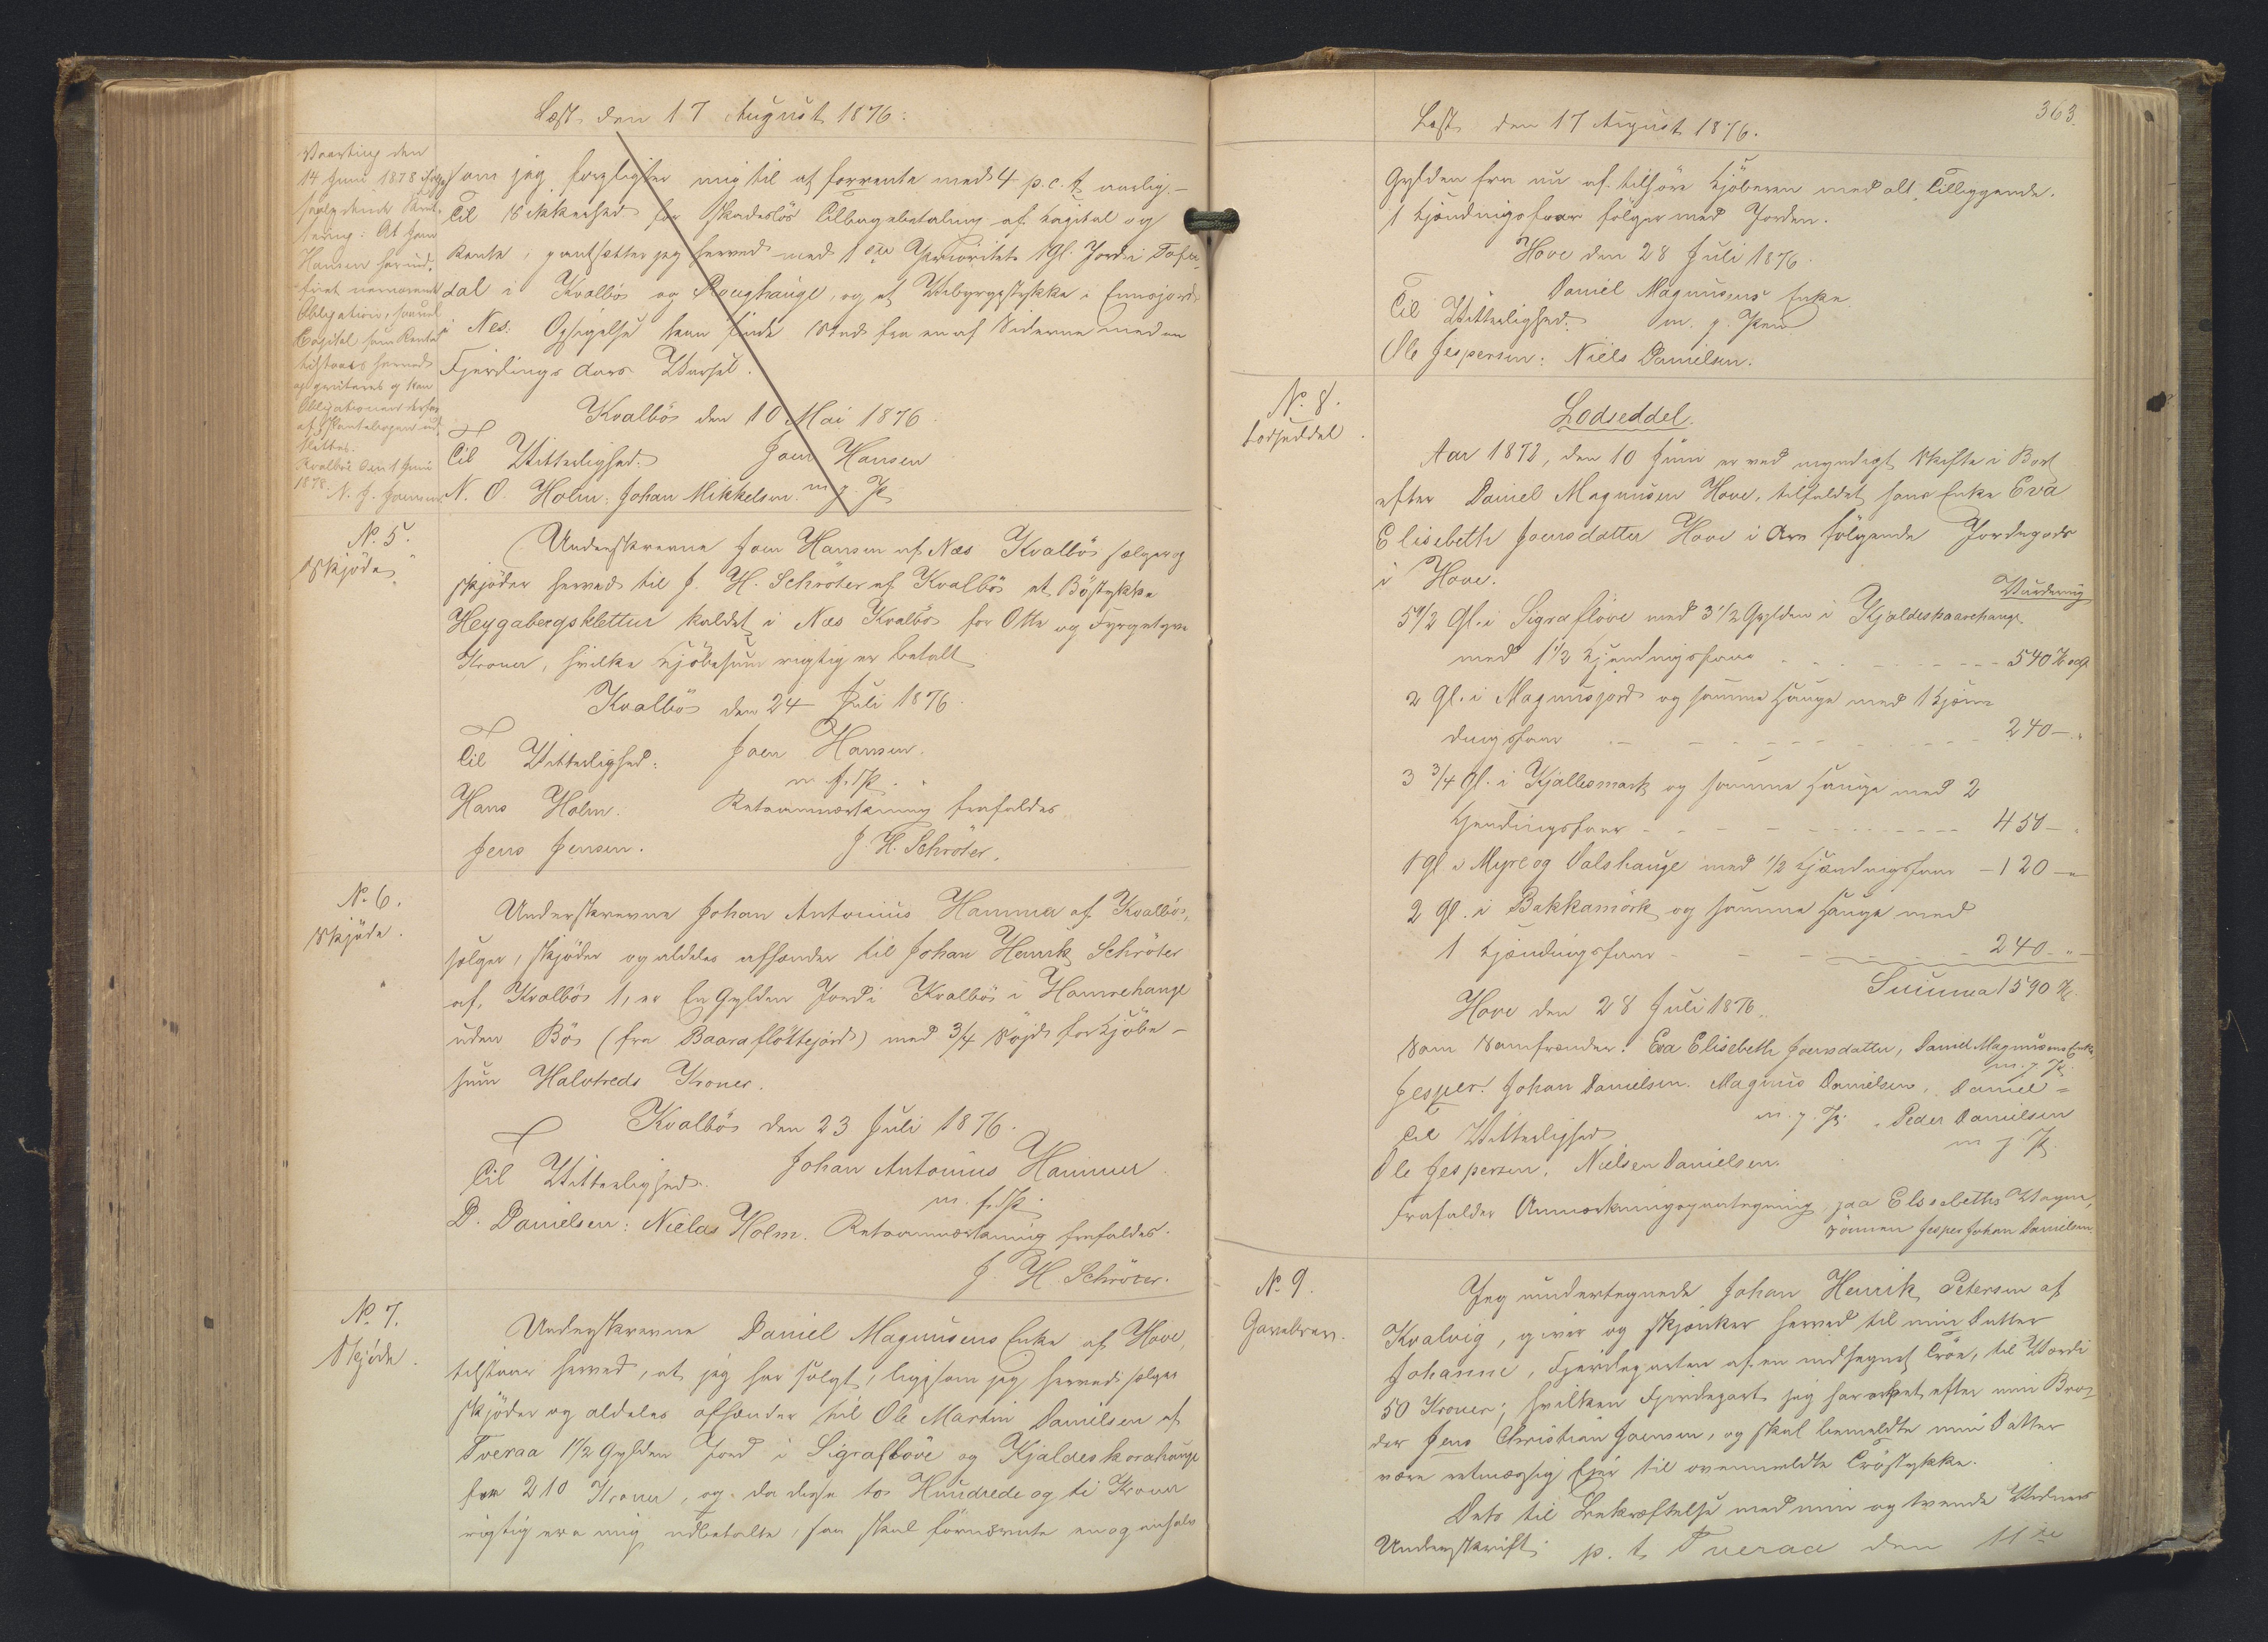 Læst den 17 August 1876.
Vaarting den
14 Juni 1878
At Joen
Hansen har ud-
Obligation, saavel
Capital som Renter
tilstaaes herved
at qvitteres og kan
Obligationen derfor
af Pantebogen ud-
slettes.
Kvalbø den 1 Juni
1878. N. J.
som jeg forpligter mig til at forrente med 4 p.c.t. aarlig.-
Til Sikkerhed for skadesløs Tilbagebetaling af Kapital og
Rente, pantsætter jeg herved med 1ste Prioritet 1 Gl. Jord i
dal i Kvalbø og, og et Udbyggestykke i
i Nes: Opsigelse kan finde Sted fra en af Siderne med en
Fjerdings Aars Varsel.
Kvalbø den 10 Mai 1876.
Til Vitterlighed: Joen Hansen
N. O. Holm: Johan Mikkelsen. m. f. P.
No. 5.
Skjøde
Underskrevne Joen Hansen af Næs Kvalbø sælger og
skjøder herved til J. H. Schröter af Kvalbø et Bøstykke
Heygabergsklettur kaldet i Næs Kvalbø for Otte og Fyrgetyve
Kroner, hvilke Kjøbesum rigtig er betalt
Kvalbø den 24 Juli 1876.
Til Vitterlighed: Joen Hansen.
m. f. P.
Hans Holm. Retsanmærkning frafaldes.
Jens Jensen. J. H. Schröter.
No. 6.
Skjøde.
Underskrevne Johan Antonius Hammer af Kvalbø,
sælger, skjøder og aldeles afhænder til Johan Henrik Schröter
af Kvalbø 1, er En Gylden Jord i Kvalbø i Hamrehauge
uden Bø (fra Baaraflöttejord) med 3/4 Røjd for Kjøbe-
sum Halvtreds Kroner.
Kvalbø den 23 Juli 1876.
Til Vitterlighed. Johan Antonius Hammer
m. f. P.
D. Danielsen: Niclas Holm. Retsanmærkning frafaldes.
J. H. Schröter.
No. 7.
Skjøde.
Underskrevne Daniel Magnusens Enke af Hove,
tilstaar herved, at jeg har solgt, ligesom jeg herved sælger
skjøder og aldeles afhænder til Ole Martin Danielsen af
Tveraa 1 1/2 Gylden Jord i Sigrafløve og Kjaldeskorahauge
for 210 Kroner, og da disse to Hundrede og ti Kroner
rigtig ere mig udbetalte, saa skal fornævnte en og en halv
363.
Læst den 17 August 1876.
Gylden fra nu af tilhøre Kjøberen med alt Tilliggende.
1 Kjændingsfaar følger med Jorden.
Hove den 28 Juli 1876.
Daniel Magnusens Enke
Til Vitterlighed: m. p. Pen
Ole Jespersen: Niels Danielsen.
No. 8.
Lodseddel.
Lodseddel.
Aar 1872, den 10 Juni er ved myndigt Skifte i Boet
efter Daniel Magnusen Hove, tilfaldet hans Enke Eva
Elisebeth Joensdatter Hove i Arv følgende Jordegods
i Hove.
Vurdering
5 1/2 Gl. i Sigrafløve med 3 1/2 Gylden i Kjaldeskaarehauge
med 1 1/2 Kjendingsfaar - - - 540 Kr
2 Gl. i Magnusjord og samme Hauge med 1 Kjæn-
dingsfaar - - - 240 - "
3 3/4 Gl. i Kjallesmark og samme Hauge med 2
Kjendingsfaar - - - 450 - "
1 Gl. i Myre og Dalshauge med 1/2 Kjændingsfaar - 120 - "
2 Gl. i Bakkamørk og samme Hauge med
1 Kjændingsfaar - - - 240 - " -
Summa 1590 Kr.
Hove den 28 Juli 1876.
Som Samfrænder: Eva Elisebeth Joensdatter, Daniel Magnusens Enke
m. p. P.
Jesper Johan Danielsen. Magnus Danielsen, Daniel =
Til Vitterlighed m. p. P. Peder Danielsen
m. p. P.
Ole Jespersen. Nielsen Danielsen.
Frafalder Anmærkningspaategning paa Elsebeths Vegne,
Sönnen Jesper Johan Danielsen.
No 9.
Gavebrev.
Jeg undertegnede Johan Henrik Petersen af
Kvalvig, giver og skjænker herved til min Datter
Johanne, Fjerdeparten af en indhegnet Trøe, til Værdi
50 Kroner; hvilken Fjerdepart jeg har arvet efter min Bro-
der Jens Christian Joensen, og skal bemeldte min Datter
være retmæssig Ejer til ovenmeldte Trøstykke.
Dets til Bekræftelse med min og tvende Vidners
Underskrift. p. t. Tveraa den 11te